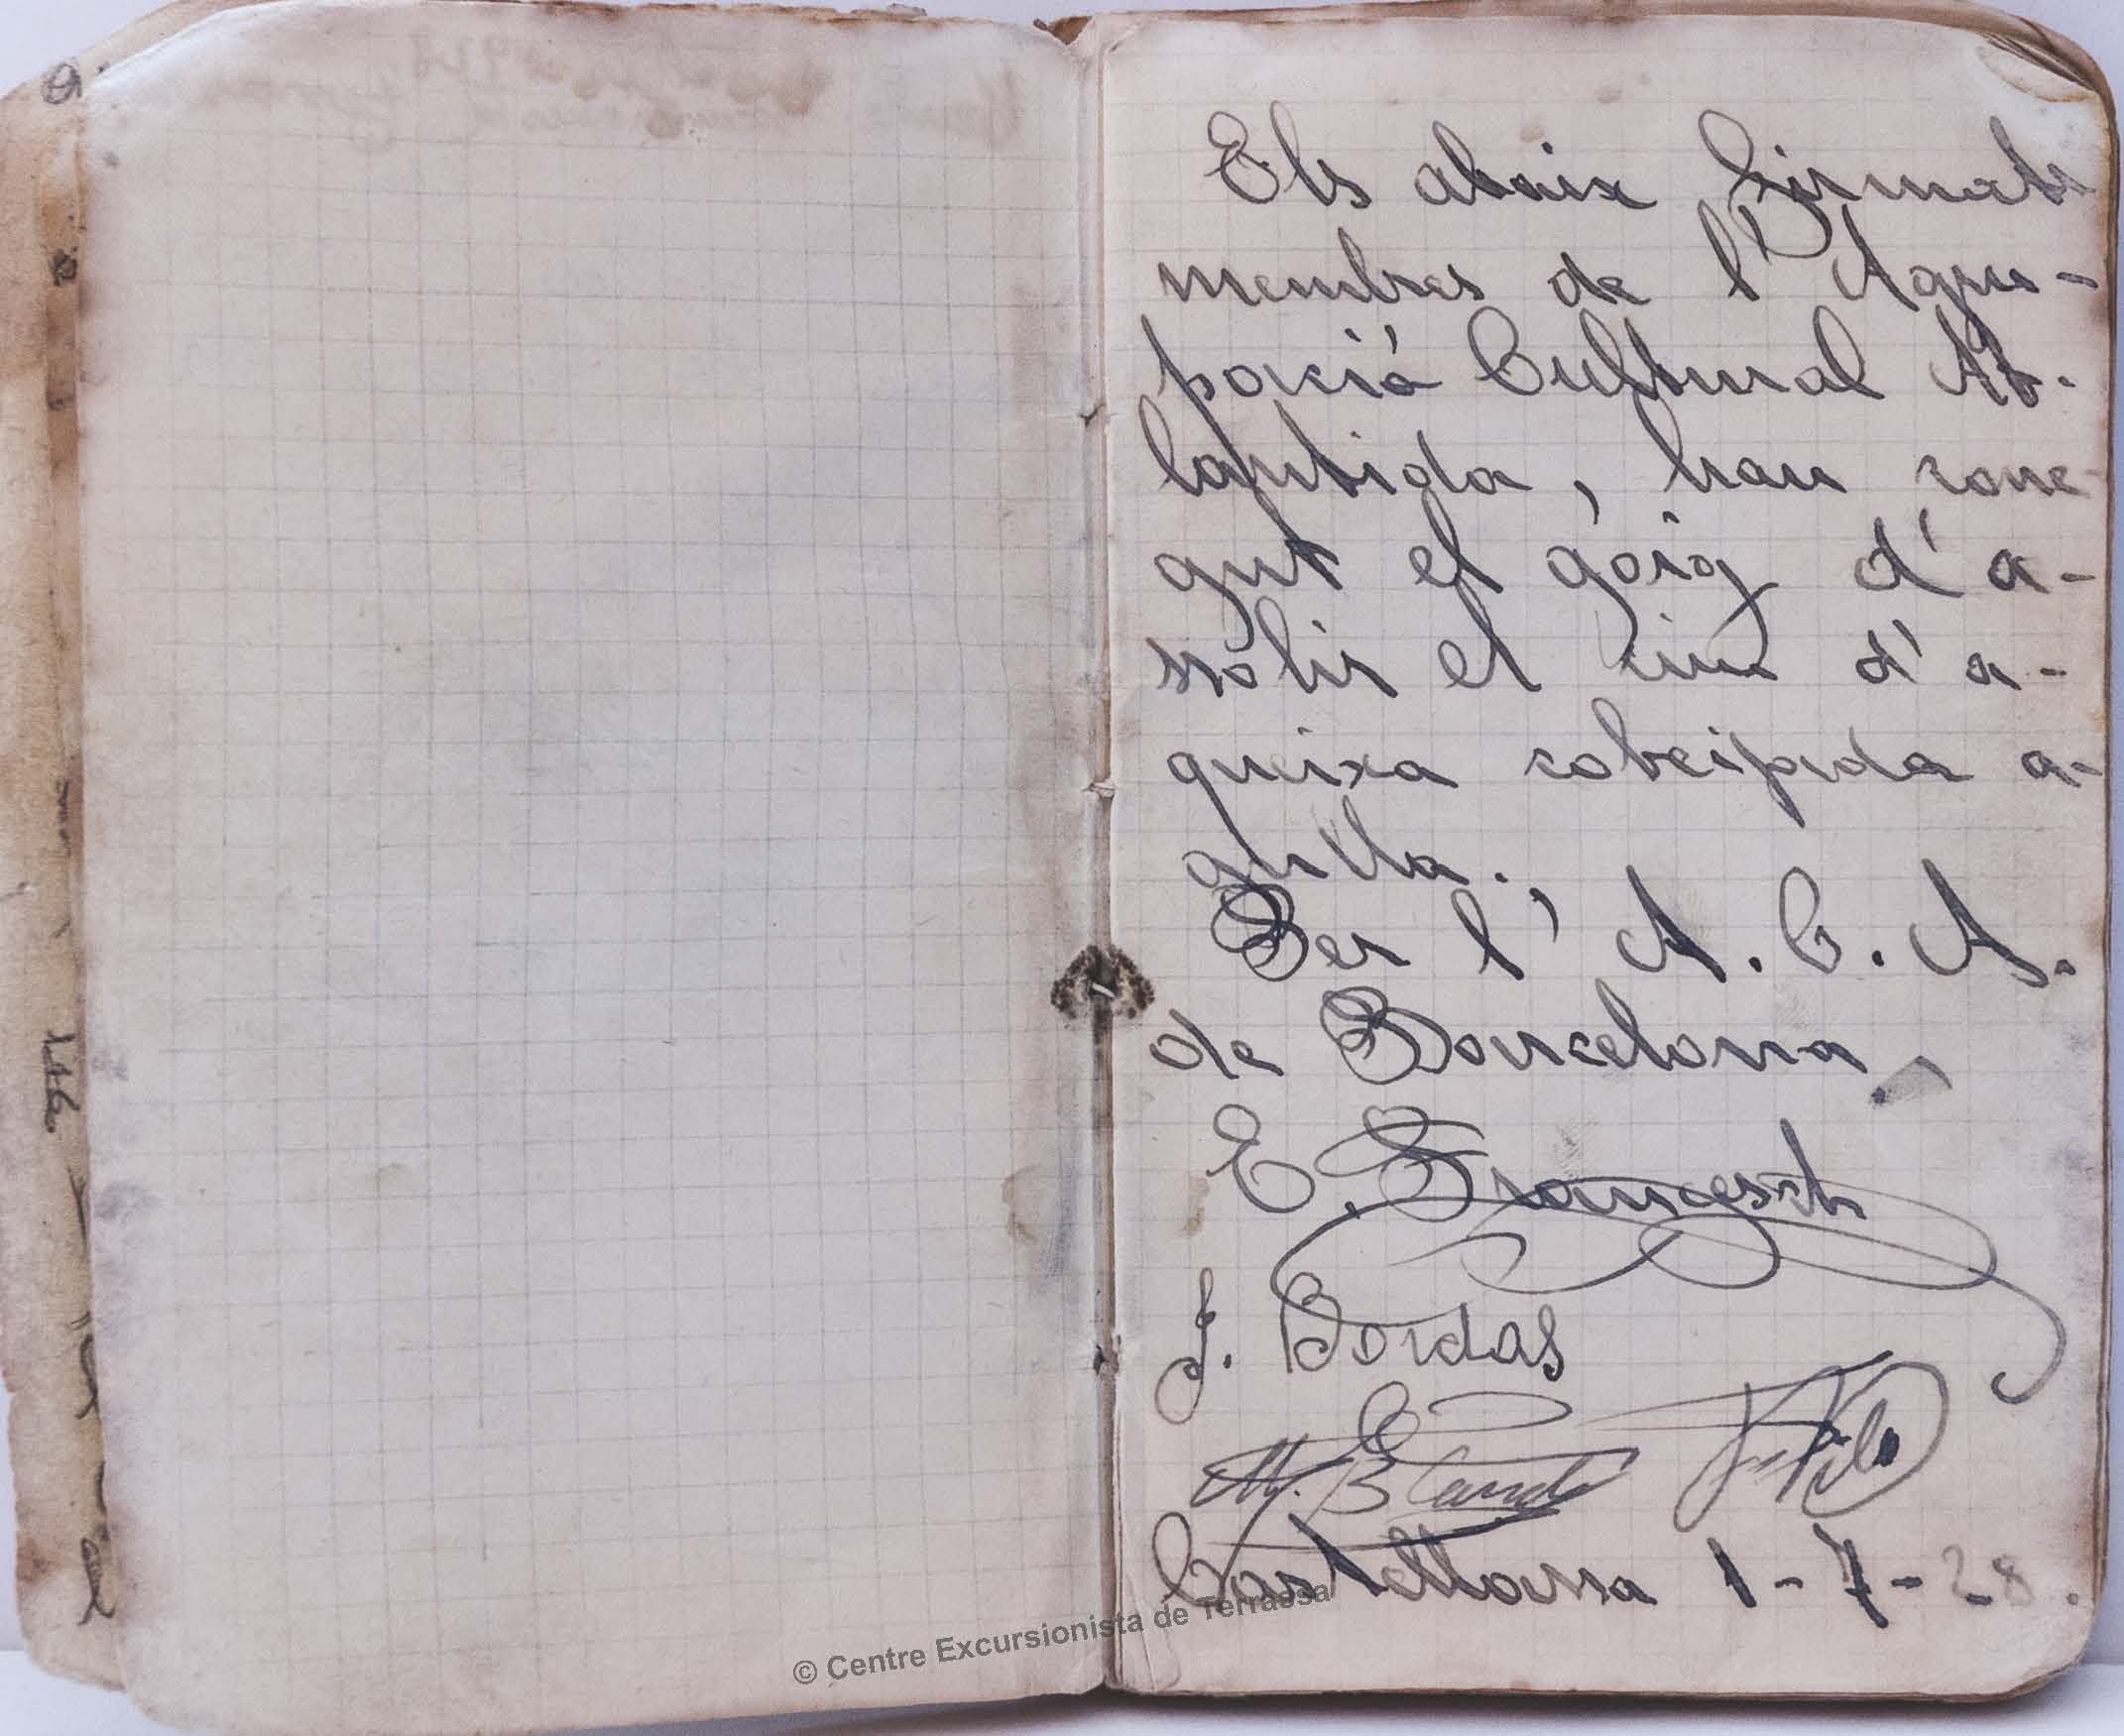 Els abaix firmats
membres de l'Agru-
pació Cultural At-
lantida, han cone-
gut el goig d'a-
ssolir el cim d'a-
queixa cobeijada a-
gulla.,
Per l'A.C.A.
de Barcelona,
E. Francesch
J. Bordas
M. Blanch
Castellassa 1-7-28.
© Centre Excursionista de Terrassa